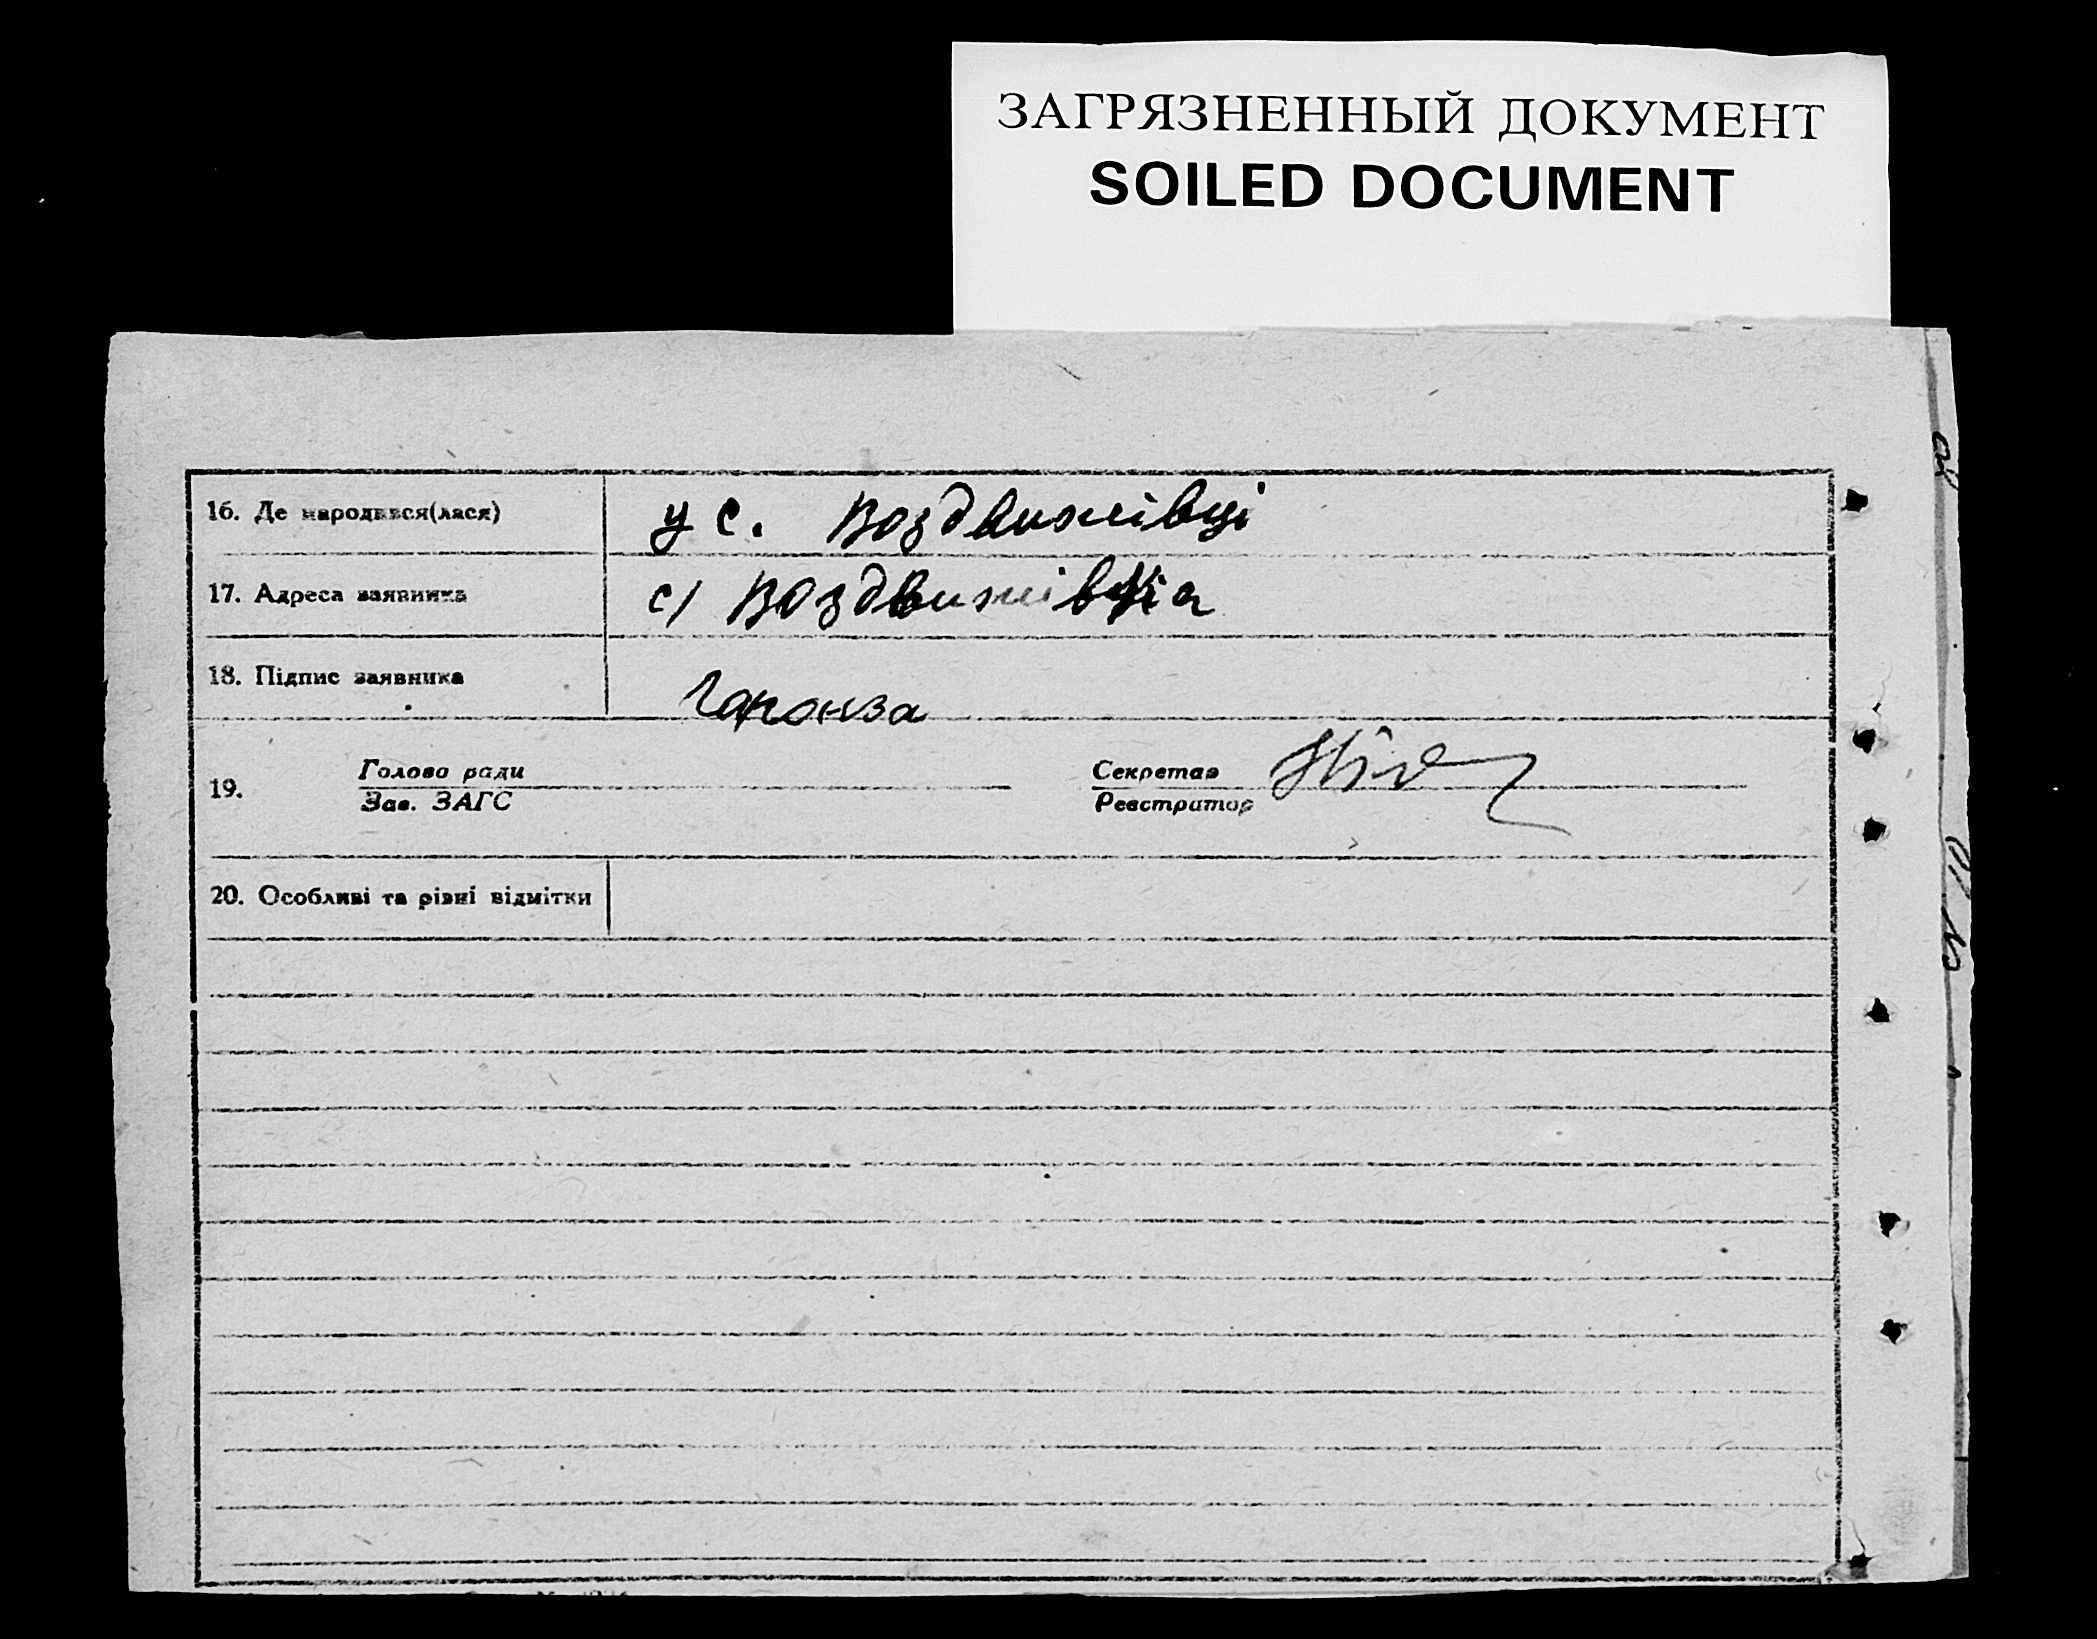 ЗАГРЯЗНЕННЫЙ ДОКУМЕНТ
SOILED DOCUMENT
16. Де народився(лася) у с. Воздвижівці
17. Адреса заявника с/ Воздвижівка
18. Підпис заявника Гапонза
19. Голова ради Секретар
Зав. ЗАГС Реєстратор
20. Особливі та різні відмітки